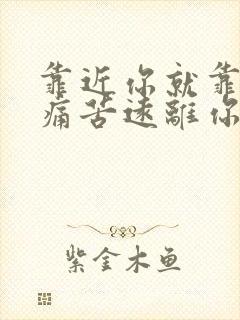 靠近你就靠
痛苦遠離你
紫金木鱼